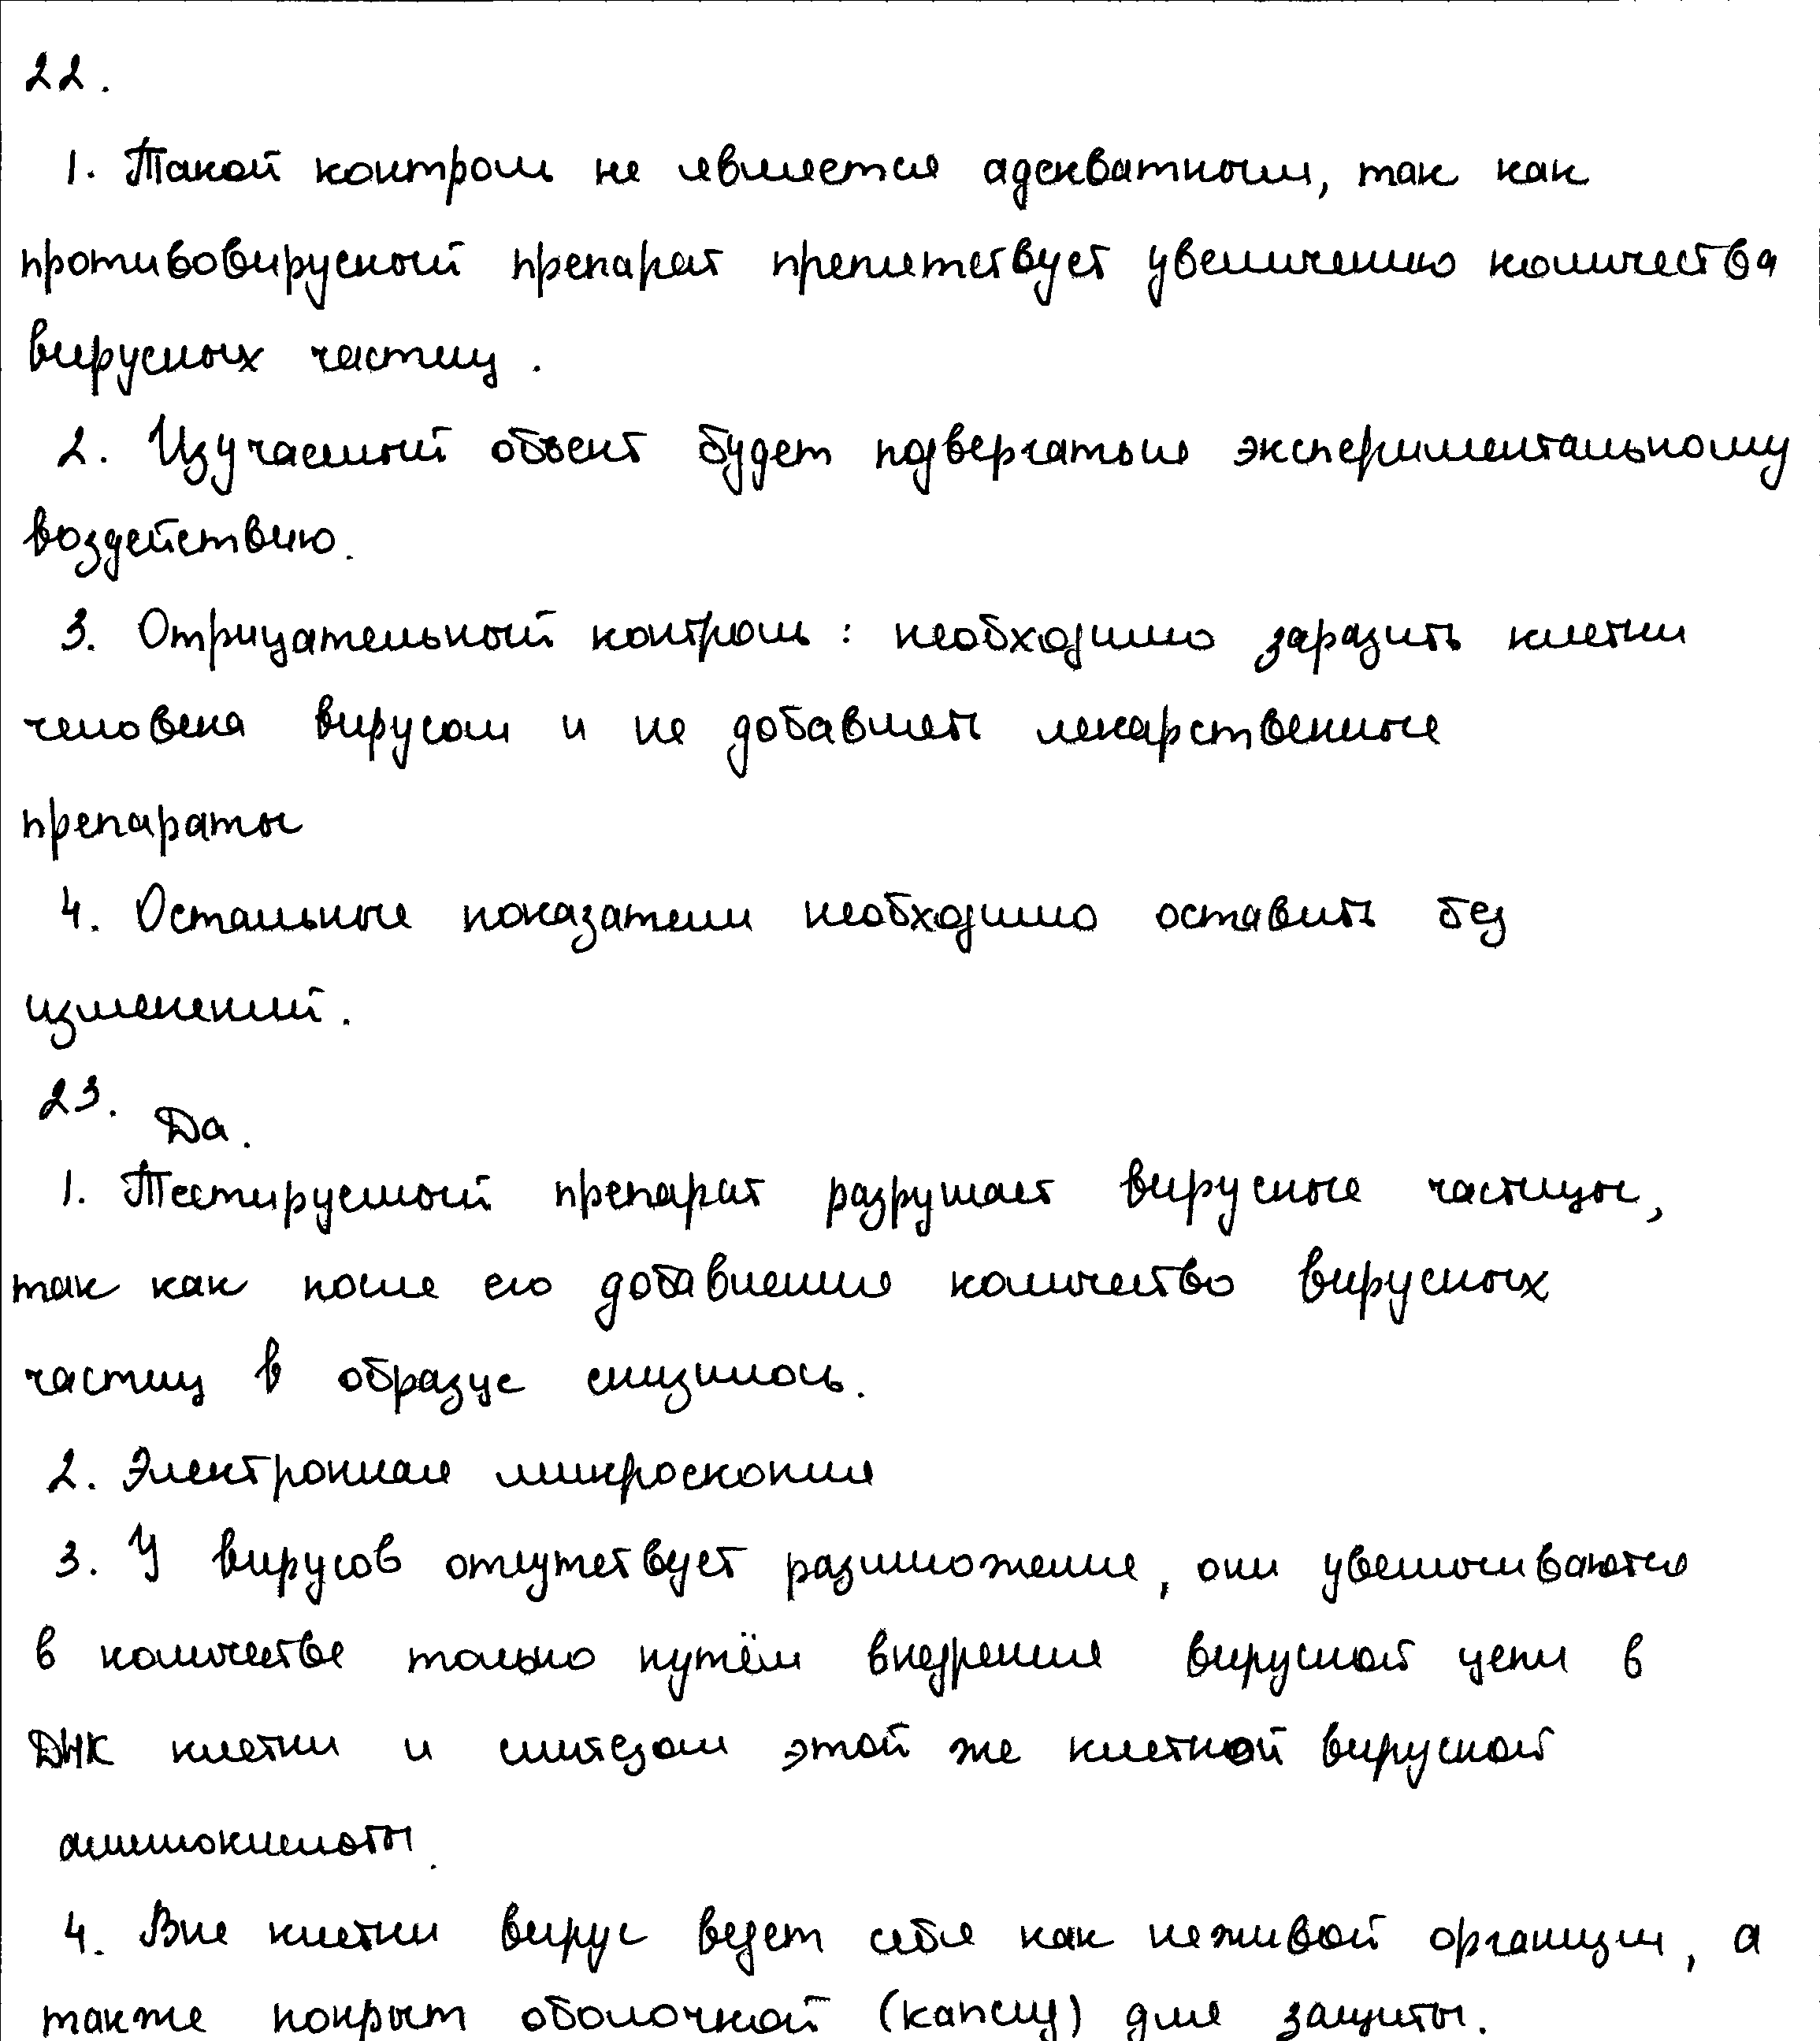 22.
1. Такой контроль не является адекватным, так как
противовирусный препарат препятствует увеличению количества
вирусных частиц.
2. Изучаемый объект будет подвергаться экспериментальному
воздействию.
3. Отрицательный контроль: необходимо заразить клетки
человека вирусом и не добавлять лекарственные
препараты
4. Остальные показатели необходимо оставить без
изменений.
23. Да.
1. Тестируемый препарат разрушает вирусные частицы,
так как после его добавления количество вирусных
частиц в образце снизилось.
2. Электронная микроскопия
3. У вирусов отсутствует размножение, они увеличиваются
в количестве только путём внедрения вирусной цепи в
ДНК клетки и синтезом этой же клеткой вирусной
аминокислоты.
4. Вне клетки вирус ведет себя как неживой организм, а
также покрыт оболочкой (капсид) для защиты.